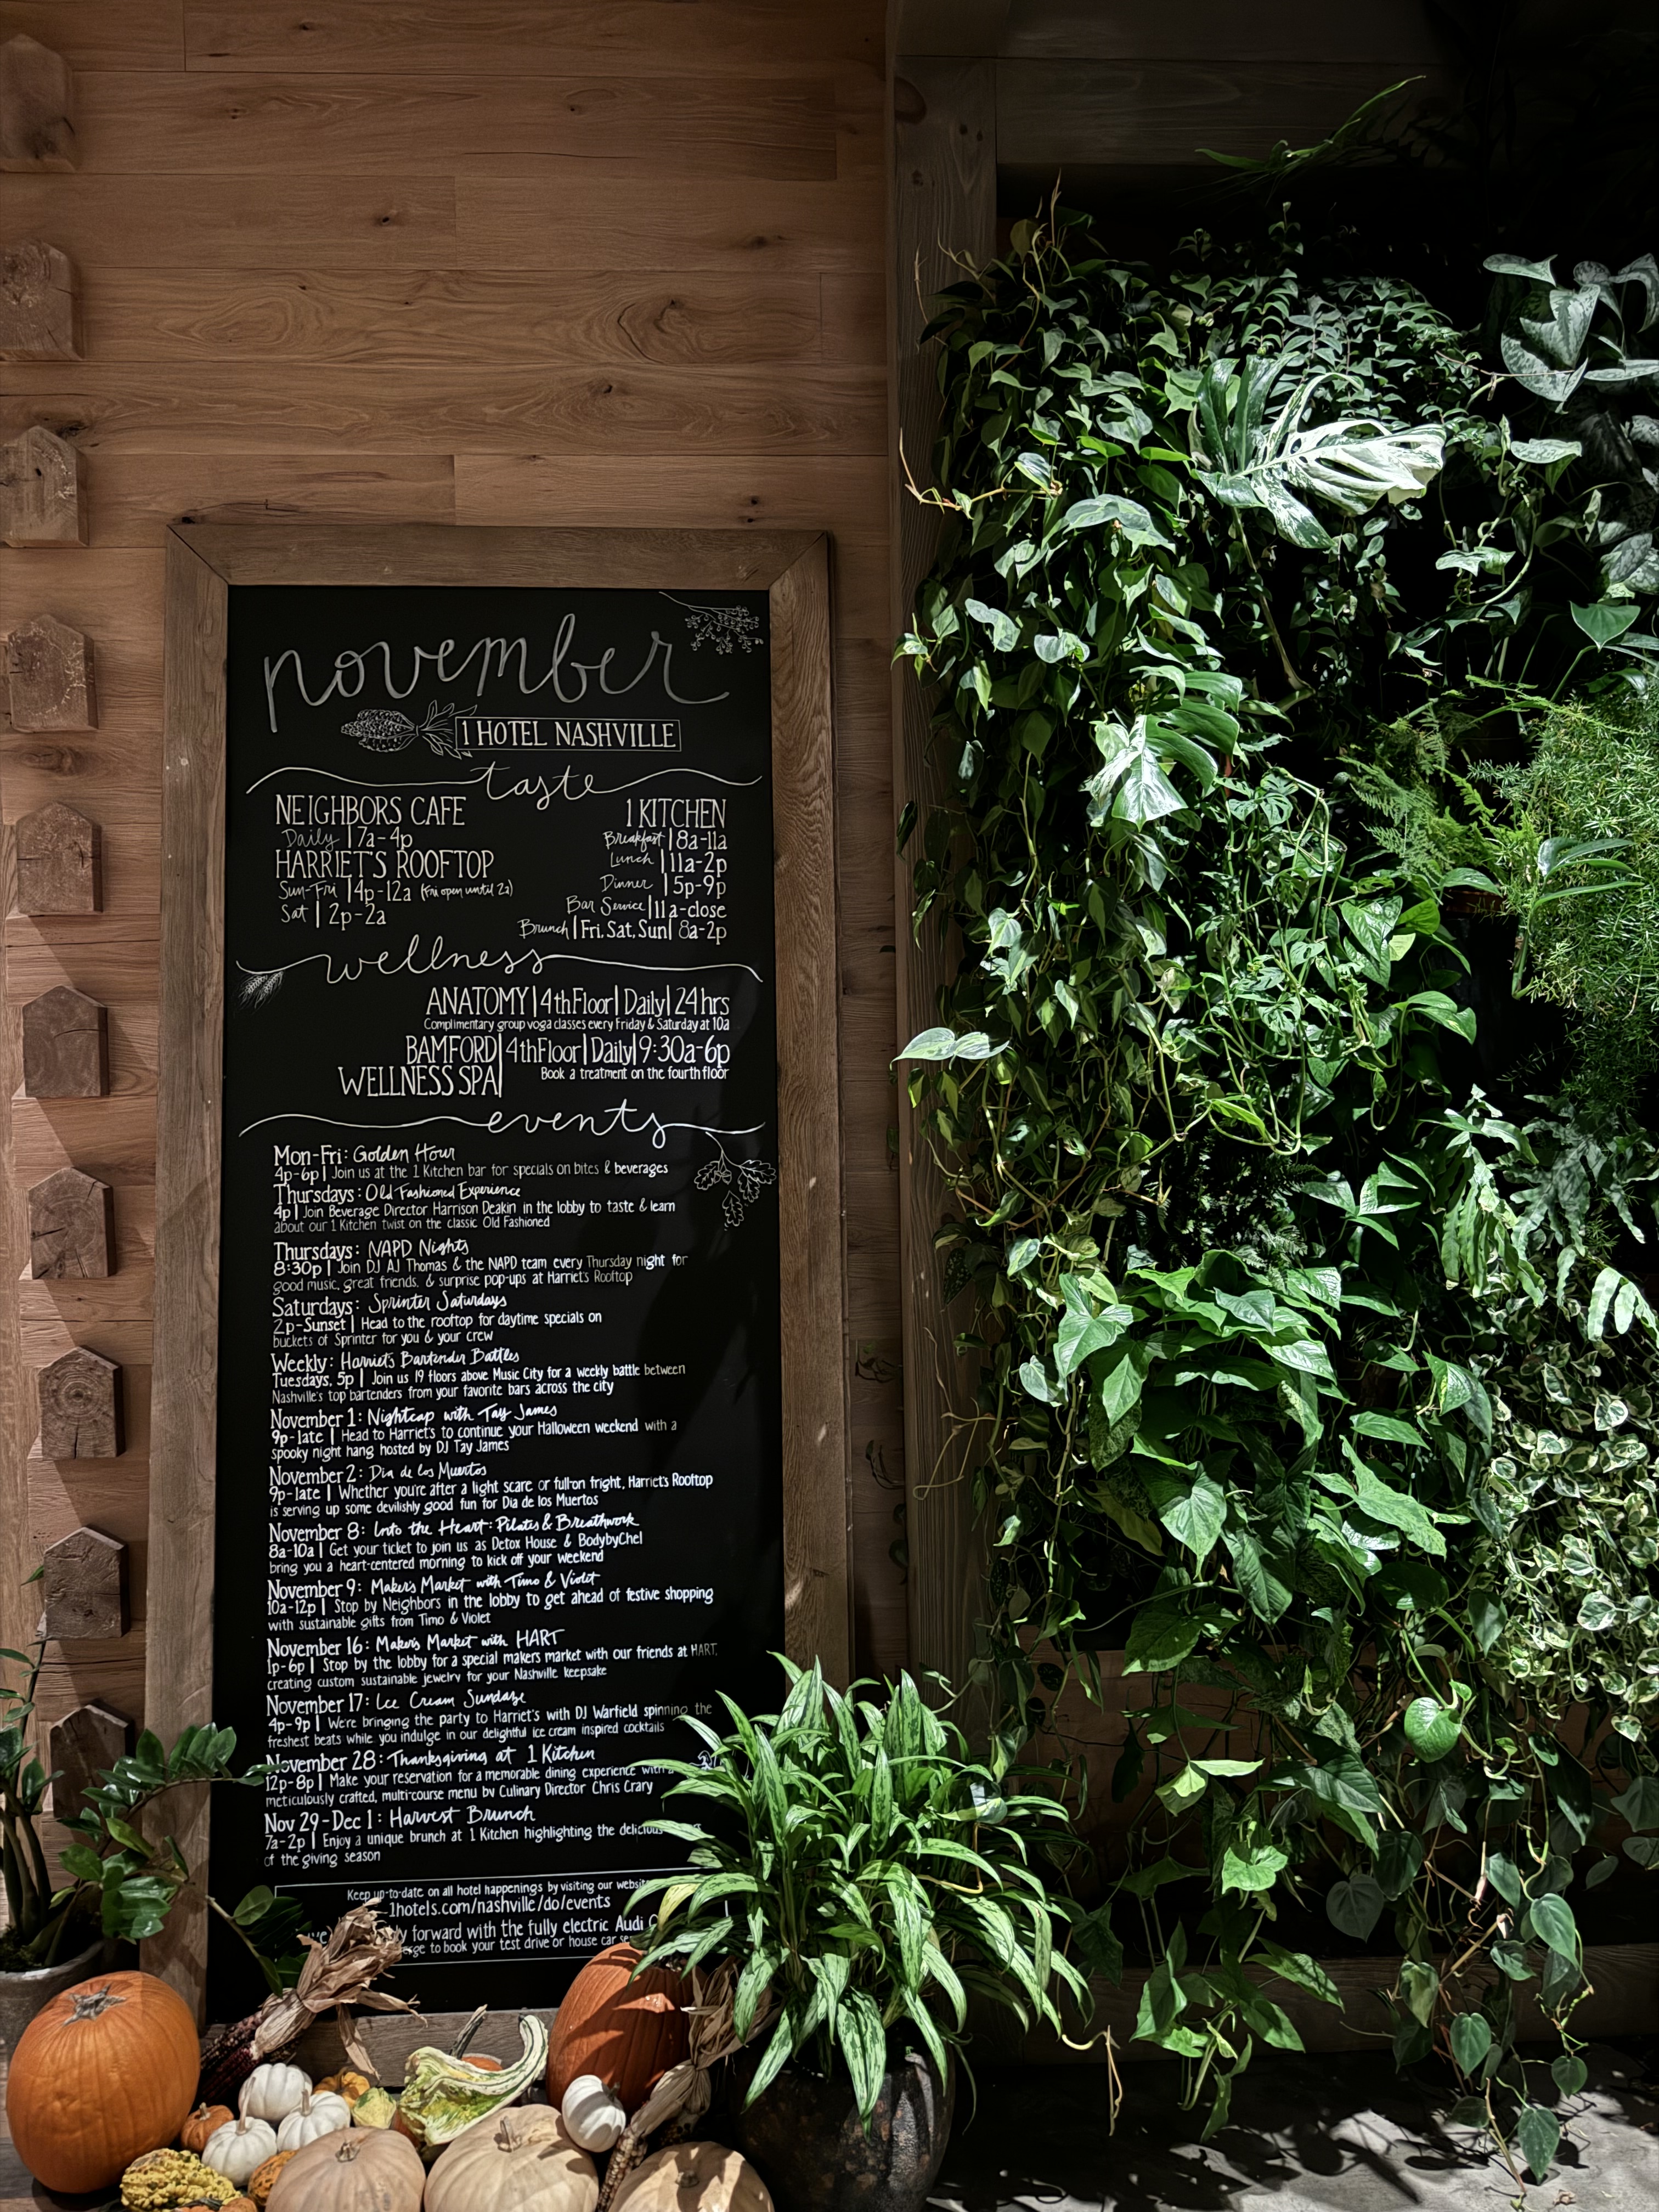 november
1 HOTEL NASHVILLE
taste
NEIGHBORS CAFE
Daily | 7a-4p
HARRIET'S ROOFTOP
Sun-Fri | 4p-12a (Fri open until 2a)
Sat | 2p-2a
1 KITCHEN
Breakfast | 8a-11a
Lunch | 11a-2p
Dinner | 5p-9p
Bar Service | 11a-close
Brunch | Fri, Sat, Sun | 8a-2p
wellness
ANATOMY | 4th Floor | Daily | 24 hrs
Complimentary group yoga classes every Friday & Saturday at 10a
BAMFORD | 4th Floor | Daily | 9:30a-6p
WELLNESS SPA | Book a treatment on the fourth floor
events
Mon-Fri: Golden Hour
4p-6p | Join us at the 1 Kitchen bar for specials on bites & beverages
Thursdays: Old Fashioned Experience
4p | Join Beverage Director Harrison Deakin in the lobby to taste & learn
about our 1 Kitchen twist on the classic Old Fashioned
Thursdays: NAPD Nights
8:30p | Join DJ AJ Thomas & the NAPD team every Thursday night for
good music, great friends, & surprise pop-ups at Harriet's Rooftop
Saturdays: Sprinter Saturdays
2p-Sunset | Head to the rooftop for daytime specials on
buckets of Sprinter for you & your crew
Weekly: Harriet's Bartender Battles
Tuesdays, 5p | Join us 19 floors above Music City for a weekly battle between
Nashville's top bartenders from your favorite bars across the city
November 1: Nightcap with Tay James
9p-late | Head to Harriet's to continue your Halloween weekend with a
spooky night hang hosted by DJ Tay James
November 2: Dia de los Muertos
9p-late | Whether you're after a light scare or full-on fright, Harriet's Rooftop
is serving up some devilishly good fun for Dia de los Muertos
November 8: Into the Heart: Pilates & Breathwork
8a-10a | Get your ticket to join us as Detox House & BodybyChel
bring you a heart-centered morning to kick off your weekend
November 9: Makers Market with Timo & Violet
10a-12p | Stop by Neighbors in the lobby to get ahead of festive shopping
with sustainable gifts from Timo & Violet
November 16: Makers Market with HART
1p-6p | Stop by the lobby for a special makers market with our friends at HART,
creating custom sustainable jewelry for your Nashville keepsake
November 17: Ice Cream Sundaze
4p-9p | We're bringing the party to Harriet's with DJ Warfield spinning the
freshest beats while you indulge in our delightful ice cream inspired cocktails
November 28: Thanksgiving at 1 Kitchen
12p-8p | Make your reservation for a memorable dining experience with a
meticulously crafted, multi-course menu by Culinary Director Chris Crary
Nov 29-Dec 1: Harvest Brunch
7a-2p | Enjoy a unique brunch at 1 Kitchen highlighting the delicious
of the giving season
Keep up-to-date on all hotel happenings by visiting our
1hotels.com/nashville/do/events
forward with the fully electric Audi
to book your test drive or house car